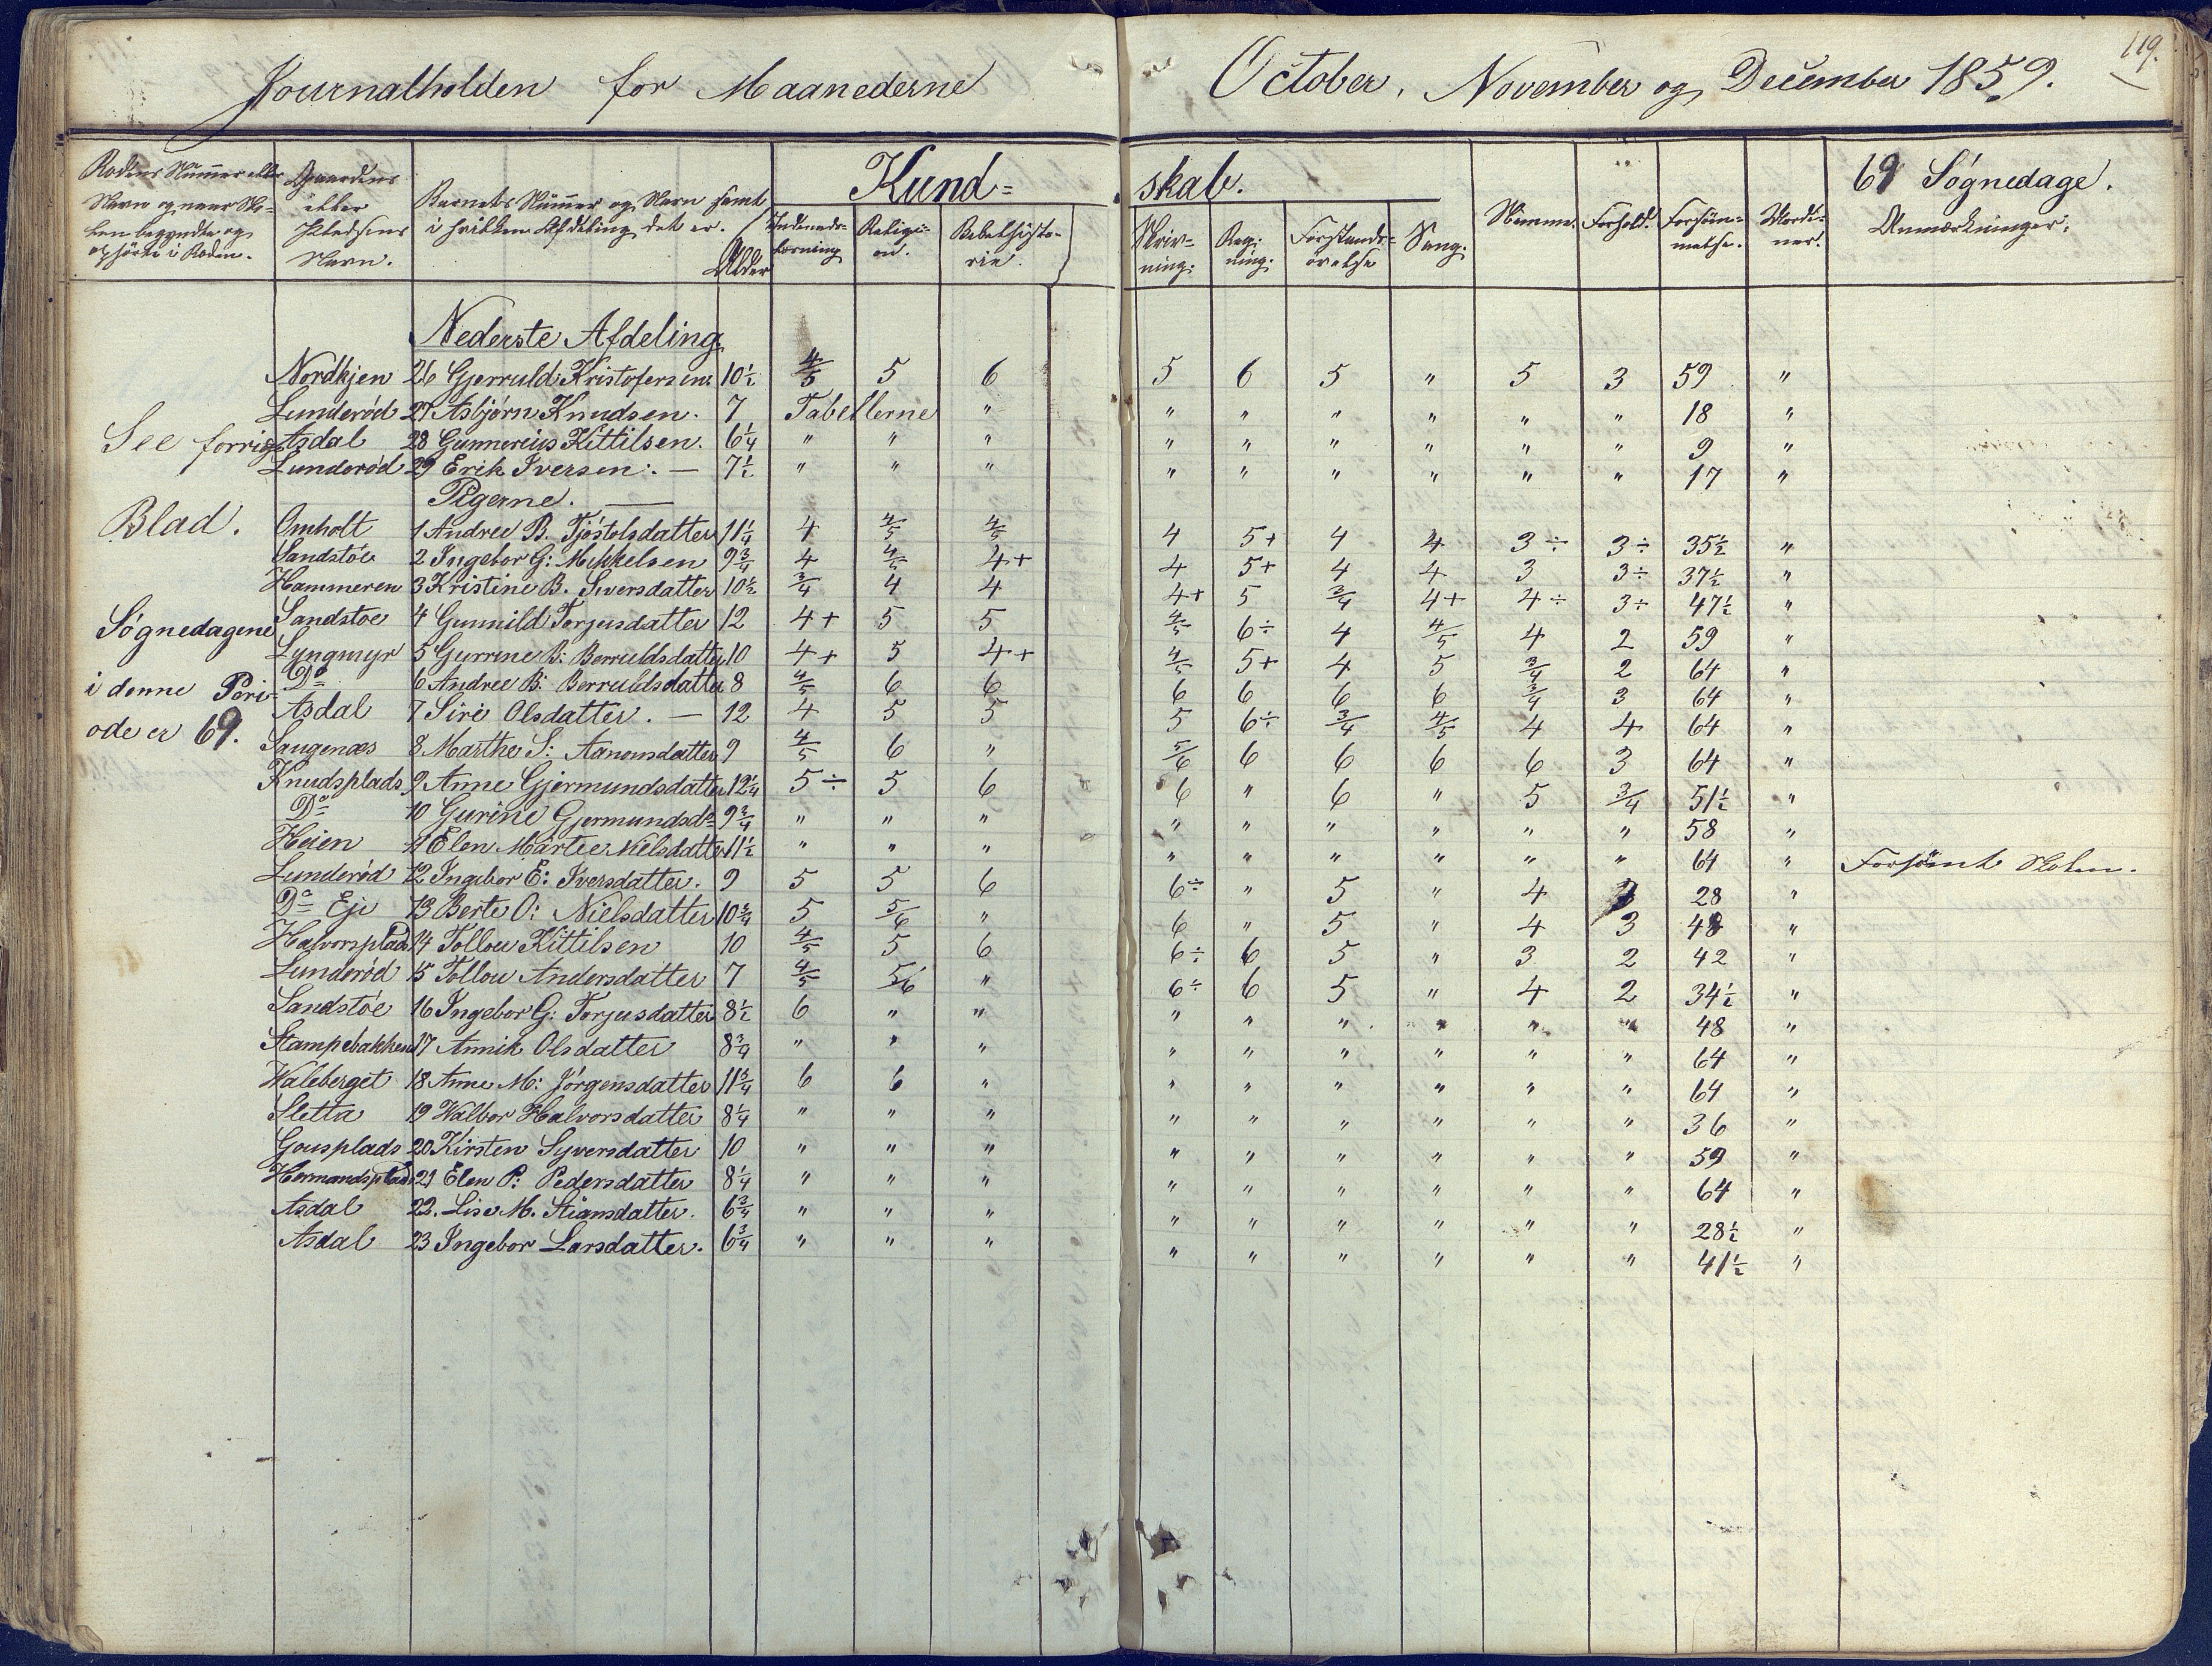 Journalholden for Maanederne October, November og December 1859.
119.
Rodens Nummer eller Navn og naar Skolen begyndte og ophörte i Roden.
Gaardens eller Pladsens Navn.
Barnets Nummer og Navn samt i hvilken Afdeling det er.
Alder
Kundskab.
Indenadslæsning
Religion.
Bibelhistorie.
Skrivning.
Regning.
Forstandsövelse
Sang.
Nemme.
Forhold.
Forsömmelse.
69 Søgnedage.
Anmærkninger.
Nederste Afdeling.
Nordkjen 26 Gjerruld Kristofersen 10½ 4/5 5 6 5 6 5 " 5 3 59 "
Lunderød 27 Asbjørn Knudsen. 7 Tabellerne " " " " " " " 18 "
See forrige
Asdal 28 Gunnereius Kittilsen. 6¼ " " " " " " " " " 9 "
Lunderød 29 Erik Iversen. — 7½ " " " " " " " " " 17 "
Pigerne. —
Blad.
Omholt 1 Andree B. Tjøstolsdatter 11¼ 4 4/5 4/5 4 5+ 4 4 3÷ 3÷ 35½ "
Sandstøe 2 Ingebor G: Mikkelsen 9¾ 4 4/5 4+ 4 5+ 4 4 3 3÷ 37½ "
Hammeren 3 Kristine B. Siversdatter 10½ 3/4 4 4 4+ 5 3/4 4+ 4÷ 3÷ 47½ "
Søgnedagene
Sandstøe 4 Gunnild Torjusdatter 12 4+ 5 5 4/5 6÷ 4 4/5 4 2 59 "
Lyngmyr 5 Gurrine B: Berruldsdatter 10 4+ 5 4+ 4/5 5+ 4 5 3/4 2 64 "
i denne Peri-
Do 6 Andree B: Berruldsdatter 8 4/5 6 6 6 6 6 6 3/4 3 64 "
Asdal 7 Siri Olsdatter. — 12 4 5 5 5 6÷ 3/4 4/5 4 4 64 "
ode er 69.
Saugenæs 8 Marthe S: Aanonsdatter 9 4/5 6 " 5/6 6 6 6 6 3 64 "
Knudsplads 9 Anne Gjermundsdatter 12¼ 5÷ 5 6 6 " 6 " 5 3/4 51½ "
Do 10 Gurine Gjermundsdr 9¾ " " " " " " " " " 58 "
Heien 11 Elen Marte Nielsdatter 11½ " " " " " " " " " 64 " Forsömt Skolen.
Lunderød 12 Ingebor E: Iversdatter. 9 5 5 6 6÷ " 5 " 4 28 "
Do Eje 13 Berte O: Nielsdatter 10¾ 5 5/6 " 6 " 5 " 4 3 48 "
Halvorsplads 14 Tollou Kittilsen 10 4/5 5 6 6÷ 6 5 " 3 2 42 "
Lunderød 15 Tollou Andersdatter 7 4/5 5/6 " 6÷ 6 5 " 4 2 34½ "
Sandstøe 16 Ingebor G: Torjusdatter 8½ 6 " " " " " " " " 48 "
Stampebakken 17 Annik Olsdatter 8¾ " " " " " " " " " 64 "
Waleberget 18 Anne M: Jørgensdatter 11¾ 6 6 " " " " " " " 64 "
Sletta 19 Walbor Halvorsdatter 8¼ " " " " " " " " " 36 "
Gousplads 20 Kirsten Syversdatter 10 " " " " " " " " " 59 "
Hermandsplads 21 Elen P: Pedersdatter 8¼ " " " " " " " " " 64 "
Asdal 22. Lise M. Stiansdatter. 6¾ " " " " " " " " " 28½ "
Asdal 23 Ingebor Larsdatter. 6¾ " " " " " " " " " 41½ "